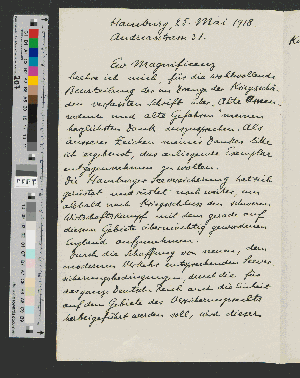 Hamburg, 25. Mai 1918.
Andreasstrasse 31.
Ew Magnificenz
beehre ich mich für die wohlwollende
Beurteilung der im Drange der Kriegsschä-
den verfassten Schrift über „Alte
und alte Gefahren meinen
herzlichsten Dank auszusprechen. Als
äusseres Zeichen meines Dankes bitte
ich ergebenst, das anliegende Exemplar
entgegennehmen zu wollen.
Die Hamburger Seeversicherung hat sich
gerüstet und rüstet noch weiter, um
alsbald nach Kriegsschluss den schweren
Wirtschaftskampf mit dem gerade auf
diesem Gebiete übermächtig gewordenen
England aufzunehmen.
Durch die Schaffung von neuen, dem
modernen Verkehr entsprechenden Seever-
sicherungsbedingungen, durch die für
das ganze Deutsche Reich auch die Einheit
auf dem Gebiete des Versicherungsrechts
herbeigeführt werden soll, wird dieser